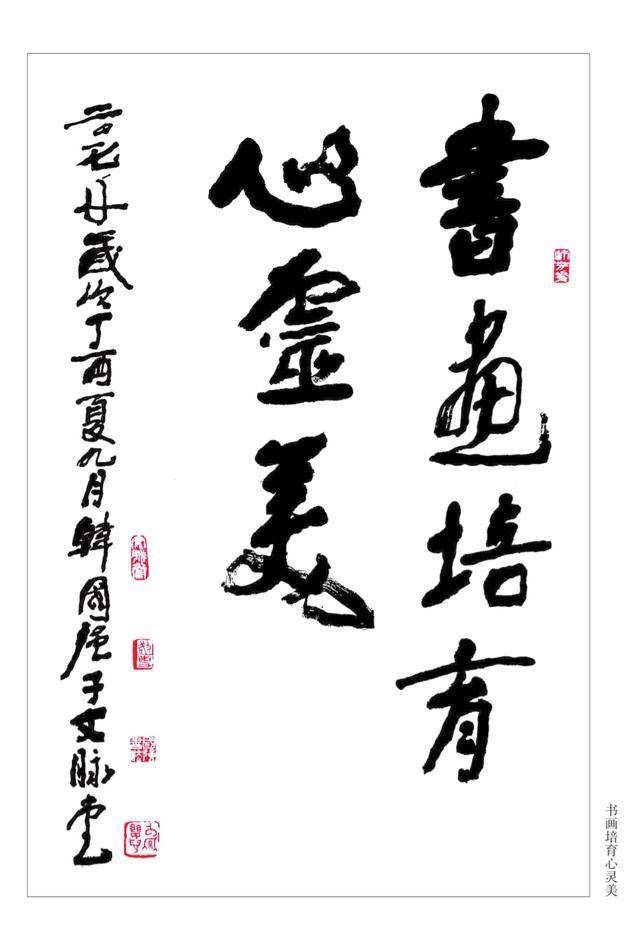 書畫培育
心靈美
二〇一七年歲次丁酉夏九月韓國强于文脉堂
书画培育心灵美